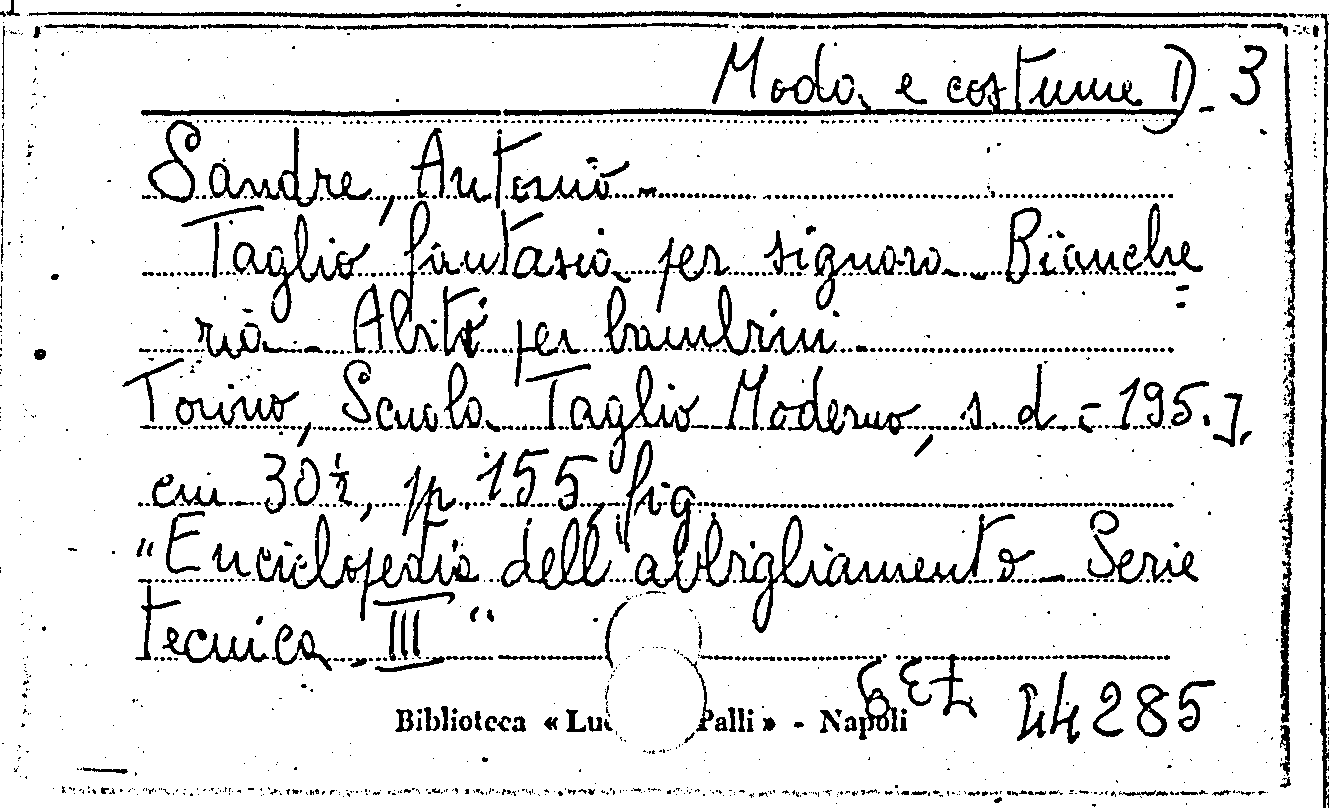 Moda e costume D. 3
Sandre, Antonio.
Taglio fantasia per signora. Bianche=
ria. Abiti per bambini.
Torino, Scuola Taglio Moderno, s. d. = 195.],
cm 30½, pp. 155, fig.
"Enciclopedia dell'abbigliamento. Serie
tecnica. III"
Biblioteca « Luc Palli » - Napoli
44285